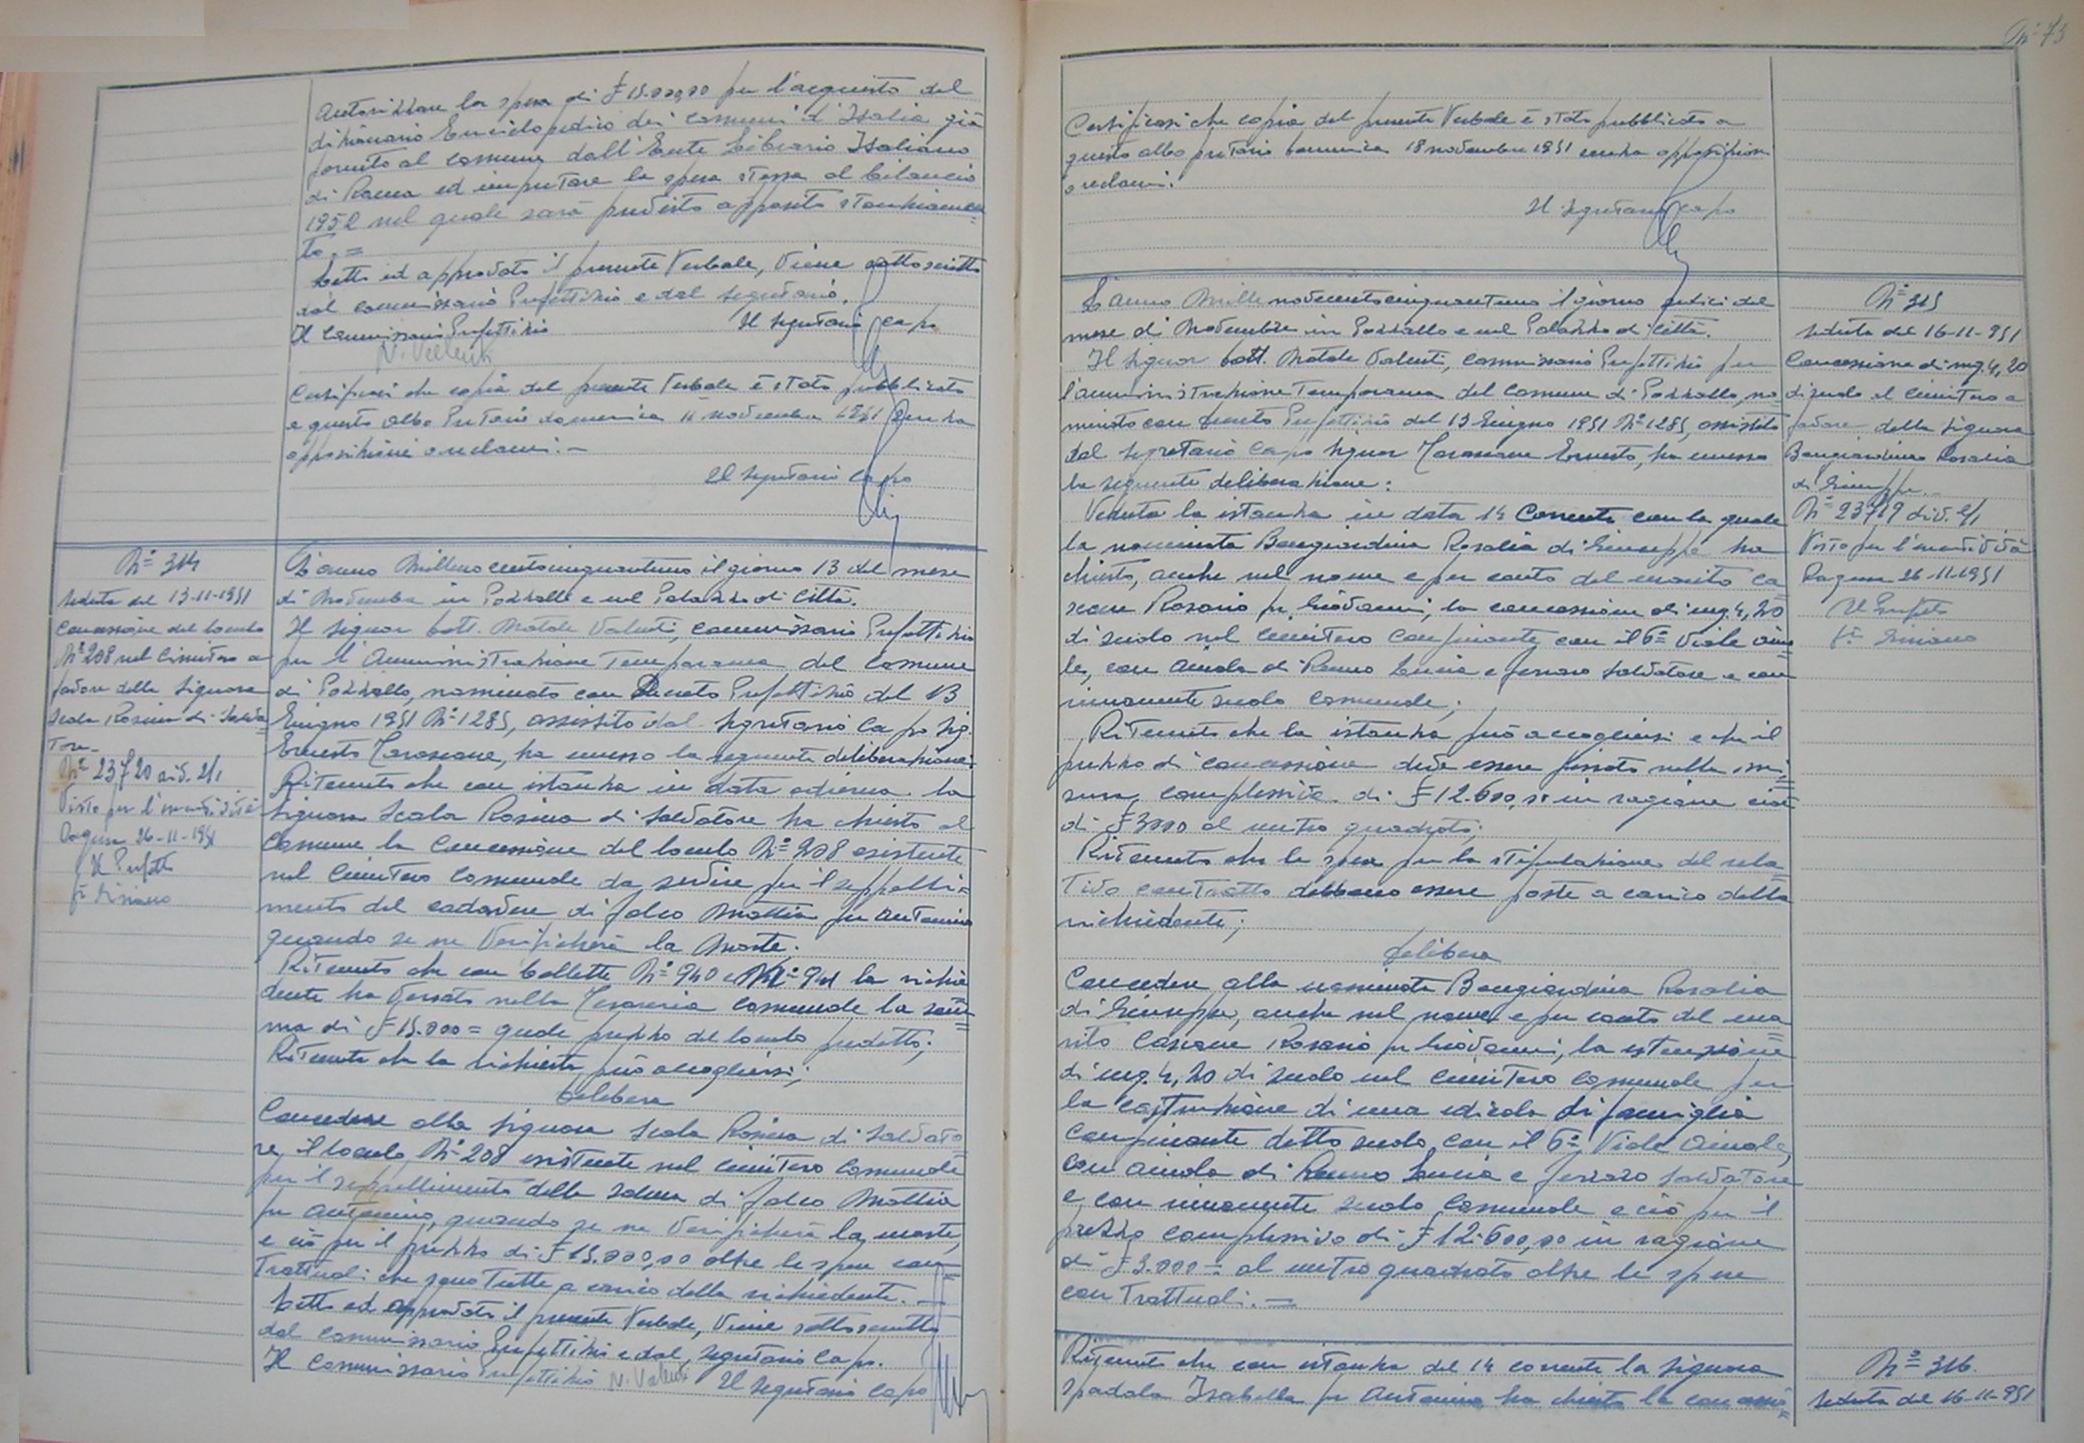 Autorizzare la spesa di £ 15.000,00 per l'acquisto del
dizionario Enciclopedico dei comuni d'Italia già
fornito al comune dall'Ente Librario Italiano
di Roma ed imputare la spesa stessa al bilancio
1952 nel quale sarà previsto apposito stanziamen=
to.=
Letto ed approvato il presente Verbale, viene sottoscritto
dal commissario Prefettizio e dal segretario.
Il Commissario Prefettizio Il Segretario Capo
N. Valenti
Certificasi che copia del presente Verbale è stato pubblicato
a questo albo Pretorio domenica novembre 1951 senza
opposizioni o reclami.-
Il Segretario Capo
N° 314
Seduta del 13-11-1951
Concessione del loculo
N° 208 nel Cimitero a
favore della Signora
Scala Rosina di Salva
tore-
N° 23720 div. 2/1
Visto per l'esecutività
Ragusa 26-11-1951
Il Prefetto
L'anno Millenovecentocinquantuno il giorno 13 del mese
di Novembre in Pozzallo e nel Palazzo di Città.
Il Signor Dott. Natale Valenti, Commissario Prefettizio
per l'Amministrazione Temporanea del Comune
di Pozzallo, nominato con Decreto Prefettizio del 13
Giugno 1951 N° 1285, assistito dal Segretario Capo Sig.
Ernesto, ha emesso la seguente deliberazione:
Ritenuto che con istanza in data odierna la
Signora Scala Rosina di Salvatore ha chiesto al
Comune la Concessione del loculo N° 208 esistente
nel Cimitero Comunale da servire per il seppelli=
mento del cadavere di Falco Mattia fu Antonino
quando se ne verificherà la morte.
Ritenuto che con bollette N° 940 e N° 941 la richie
dente ha versato nella Tesoreria comunale la som=
ma di £ 15.000= quale prezzo del loculo predetto;
Ritenuto che la richiesta può accogliersi;
Delibera
Concedere alla Signora Scala Rosina di Salvato
re, il loculo N° 208 esistente nel Cimitero Comunale
per il seppellimento della salma di Falco Mattia
fu Antonino, quando se ne verificherà la morte,
e ciò per il prezzo di £ 15.000,00 oltre le spese con=
trattuali che sono tutte a carico della richiedente.-
Letto ed approvato il presente Verbale, viene sottoscritto
dal commissario Prefettizio e dal segretario Capo.
Il Commissario Prefettizio N. Valenti Il Segretario Capo
N° 73
Certificasi che copia del presente Verbale è stato pubblicato a
questo albo pretorio domenica 18 novembre 1951 senza opposizioni
o reclami.
Il Segretario Capo
L'anno Millenovecentocinquantuno il giorno sedici del
mese di Novembre in Pozzallo e nel Palazzo di Città.
Il Signor Dott. Natale Valenti, Commissario Prefettizio per
l'amministrazione Temporanea del Comune di Pozzallo, no
minato con Decreto Prefettizio del 13 Giugno 1951 N° 1285, assistito
dal Segretario Capo Signor Ernesto, ha emesso
la seguente deliberazione:
Veduta la istanza in data 14 corrente con la quale
la nominata Bongiardina Rosalia di Giuseppe ha
chiesto, anche nel nome e per conto del marito Ca
scone Rosario fu Giovanni, la concessione di mq. 4,20
di suolo nel Cimitero confinante con il 6° viale aiuo
le, con aiuola di Lucia e Salvatore e con
rimanente suolo comunale;
Ritenuto che la istanza può accogliersi e che il
prezzo di concessione deve essere fissato nella mi=
sura complessiva di £ 12.600,00 in ragione cioè
di £ 3000 al metro quadrato;
Ritenuto che le spese per la stipulazione del rela
tivo contratto debbano essere poste a carico della
richiedente;
Delibera
Concedere alla nominata Bongiardina Rosalia
di Giuseppe, anche nel nome e per conto del ma=
rito Cascone Rosario fu Giovanni, la estensione
di mq. 4,20 di suolo nel Cimitero Comunale per
la costruzione di una edicola di famiglia
confinante detto suolo con il 6° Viale Aiuole,
con aiuola di Lucia e Salvatore
e con rimanente suolo Comunale e ciò per il
prezzo complessivo di £ 12.600,00 in ragione
di £ 3.000= al metro quadrato oltre le spese
contrattuali.-
N° 315
Seduta del 16-11-951
Concessione di mq. 4,20
di suolo al Cimitero a
favore della Signora
Bongiardina Rosalia
di Giuseppe.-
N° 23719 div. 2/1
Visto per l'esecutività
Ragusa 26-11-1951
Il Prefetto
Ritenuto che con istanza del 14 corrente la Signora
Spadola Isabella fu Antonino ha chiesto la conces=
N° 316.
Seduta del 16-11-951